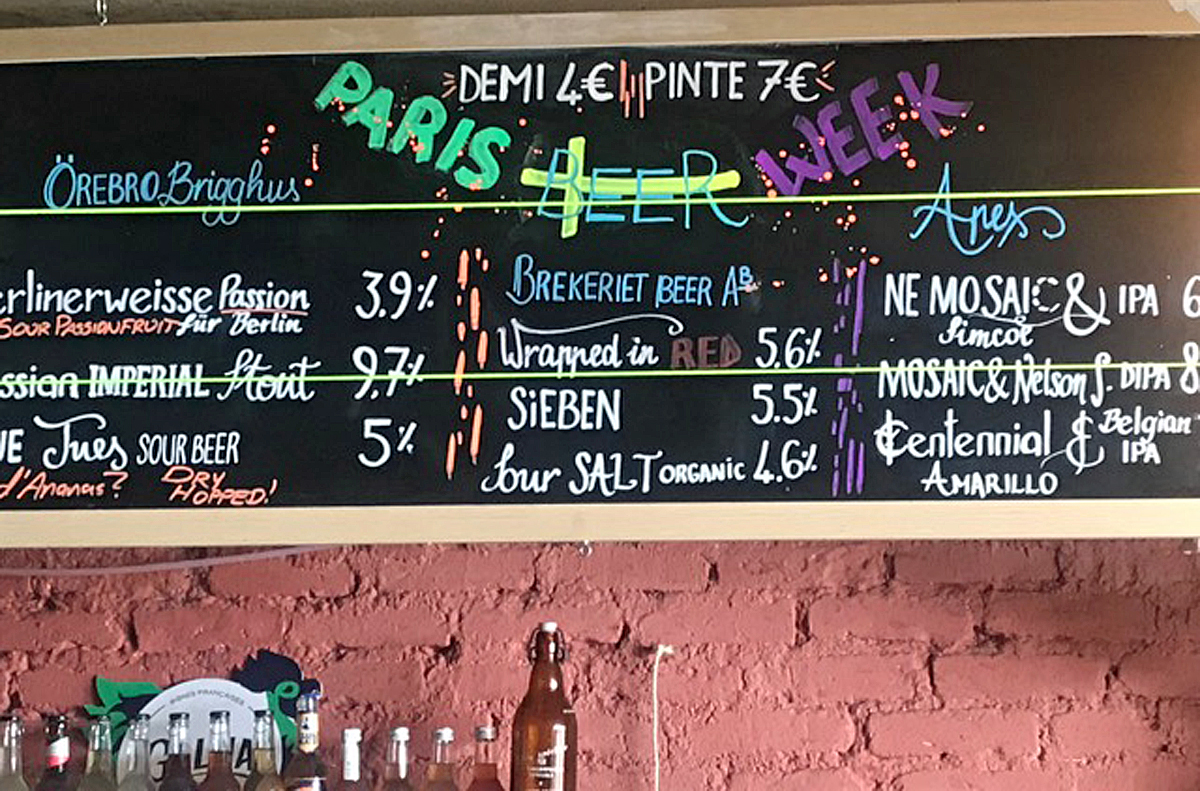 DEMI 4€ PINTE 7€
PARIS BEER WEEK
ÖREBRO Brigghus
erlinerweisse Passion 3.9%
SOUR PASSIONFRUIT für Berlin
ssian IMPERIAL Stout 9.7%
Jues SOUR BEER 5%
d'Ananas? DRY HOPPED!
BREKERIET BEER AB
Wrapped in RED 5.6%
SiEBEN 5.5%
Sour SALT ORGANIC 4.6%
Apex
NE MOSAIC & IPA 6
Simcoe
MOSAIC & Nelson S. DIPA 8
Centennial & Belgian IPA
AMARILLO